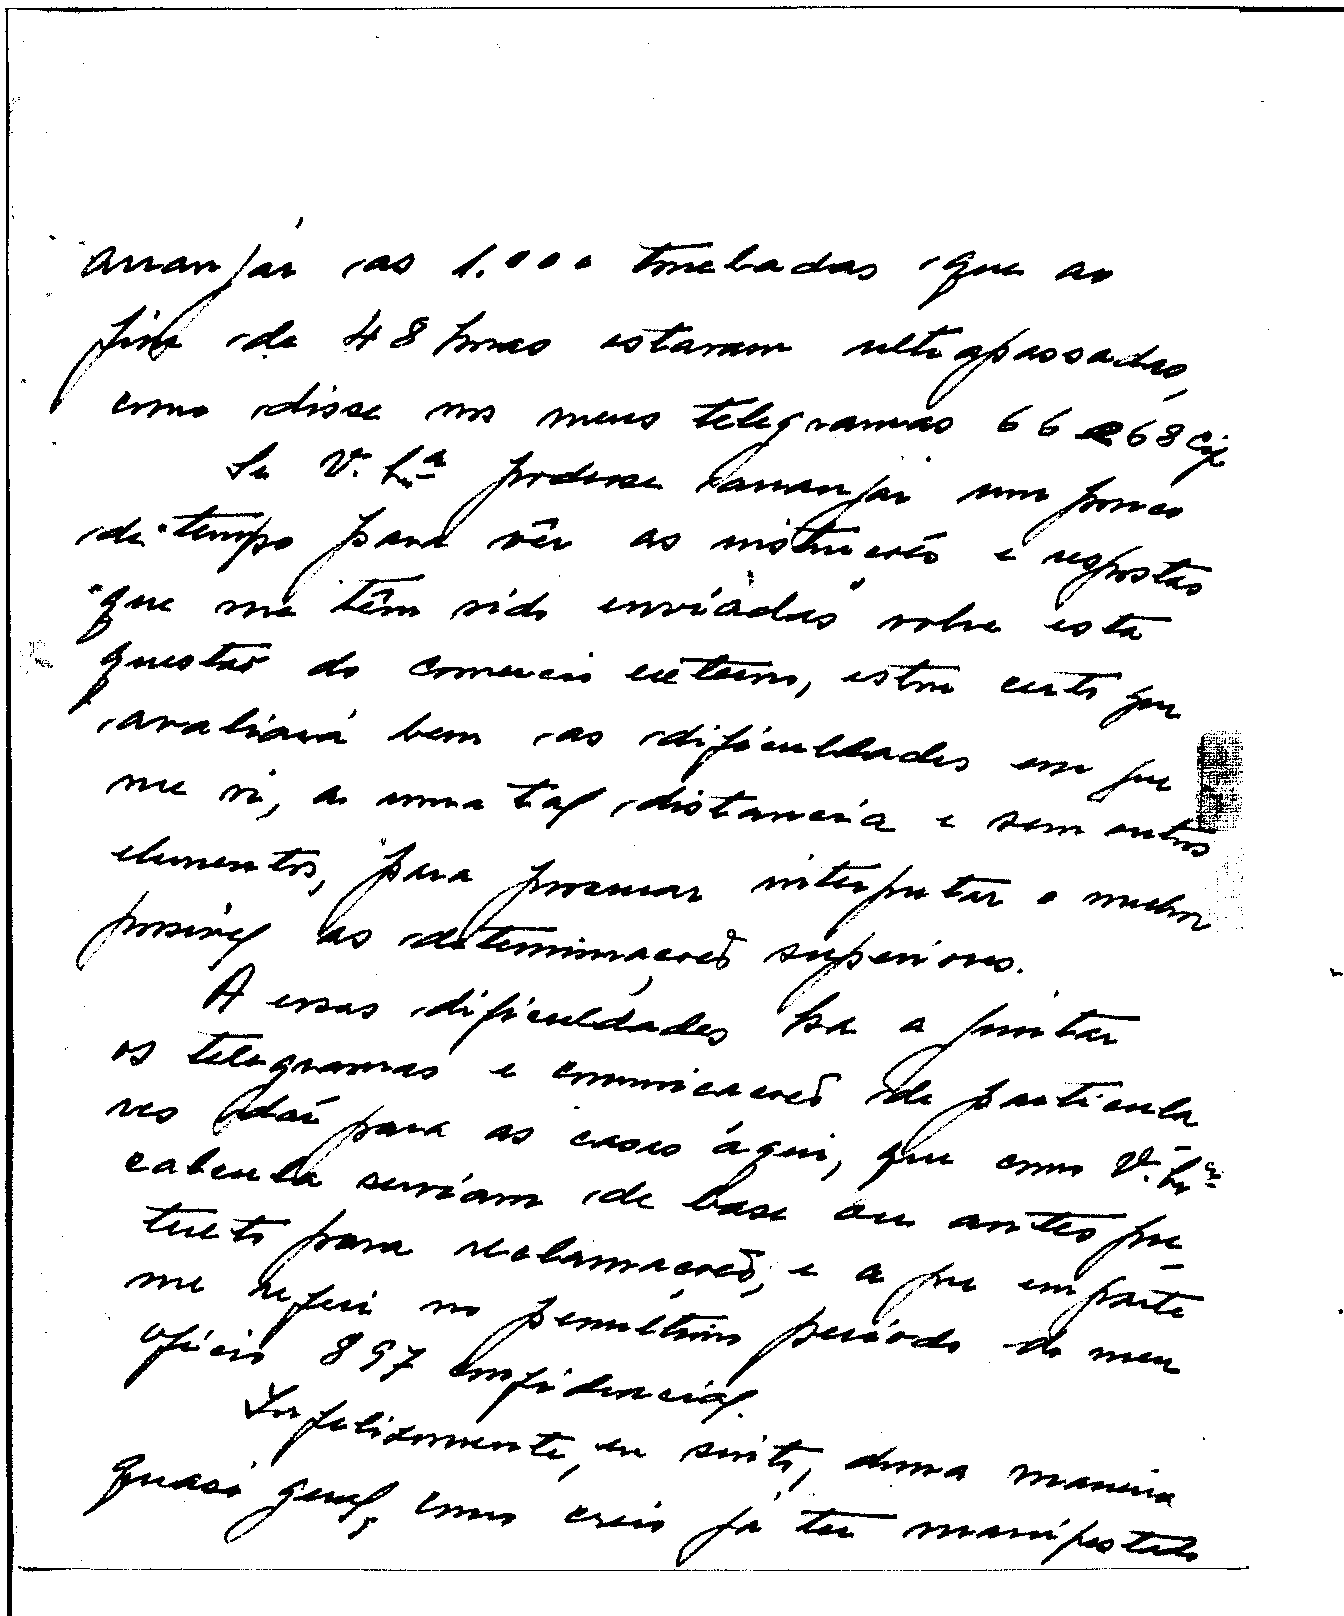 arranjar as 1.000 toneladas que ao
fim de 48 horas estavam ultrapassadas,
como disse nos meus telegramas 66 e 68 Cif
Se V. Ex.ª podesse arranjar um pouco
de tempo para vêr as instruções e respostas
"que me têm sido enviadas" sobre esta
questão do comercio externo, estou certo que
avaliará bem as dificuldades em que
me vi, a uma tal distancia e sem outros
elementos, para procurar interpretar o melhor
possivel as determinações superiores.
A essas dificuldades ha a juntar
os telegramas e comunicações de particula
res daí para as casas áqui, que como V. Ex.ª
calcula serviam de base ou antes pre
texto para reclamações, e a que em parte
me referi no penultimo periodo do meu
oficio 897 confidencial.
Infelizmente, eu sinto, duma maneira
quasi geral, como creio já ter manifestado